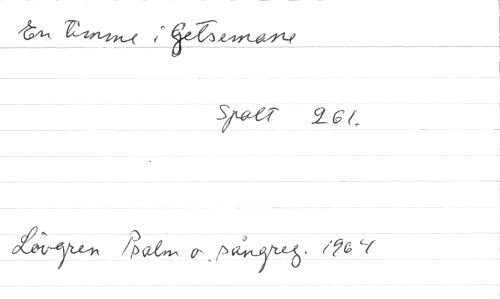 En timme i Getsemane
Spalt 261.
Lövgren Psalm o. sångreg. 1964